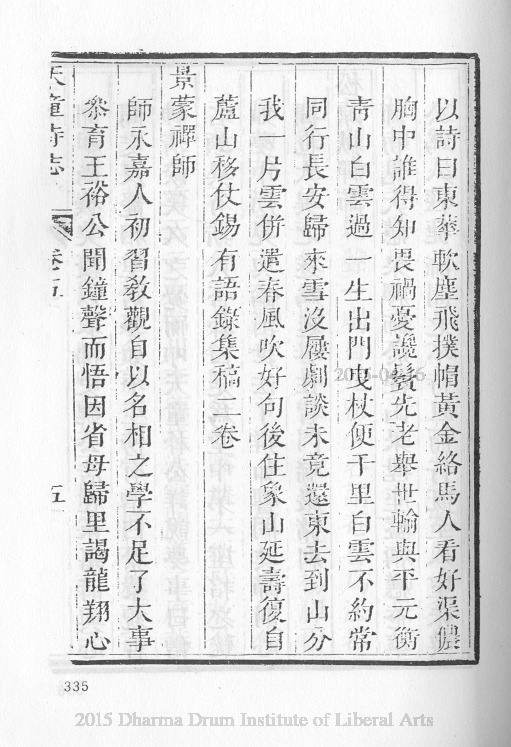 以詩曰東華軟塵飛撲帽黃金絡馬人看好渠儂
胸中誰得知畏禍憂讒鬢先老舉世輸與平元衡
靑山白雲過一生出門曳杖便千里白雲不約常
同行長安歸來雪沒屨劇談未竟還東去到山分
我一片雲併遣春風吹好句後住象山延壽復自
蘆山移仗錫有語錄集稿二卷
景蒙禪師
師永嘉人初習敎觀自以名相之學不足了大事
叅育王裕公聞鐘聲而悟因省母歸里謁龍翔心
天童寺志
卷五
五
335
2015 Dharma Drum Institute of Liberal Arts